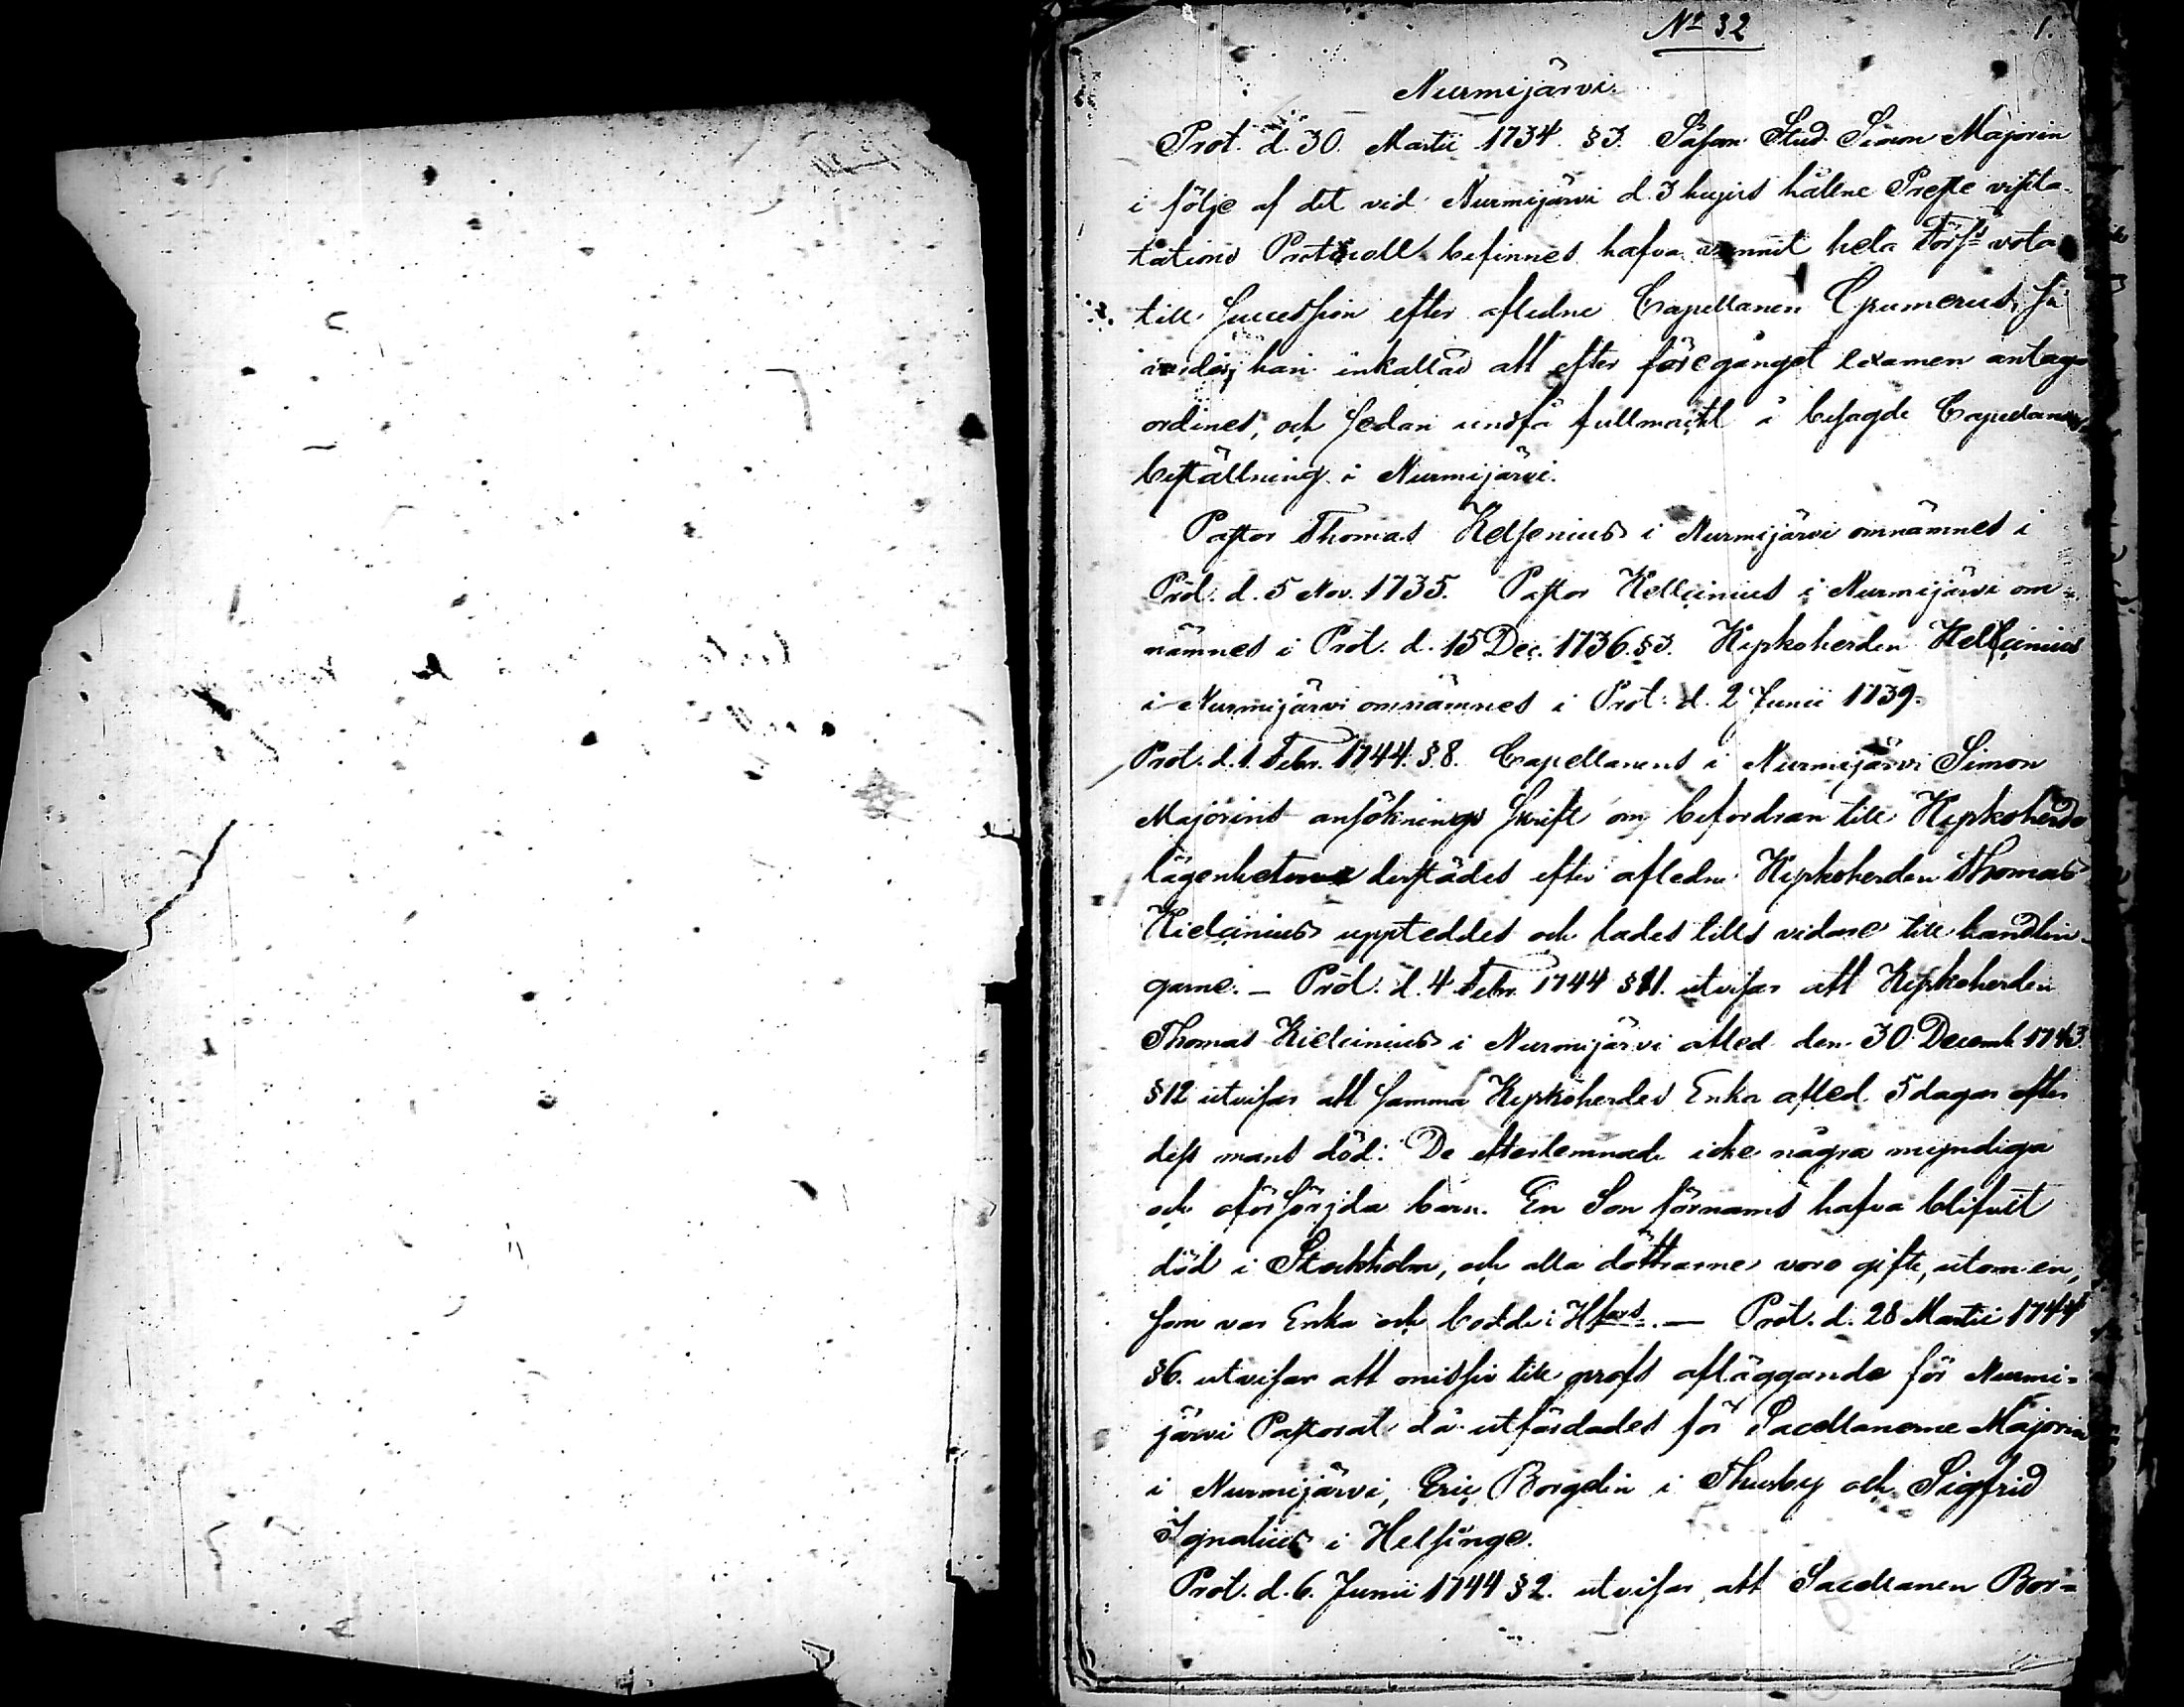 № 32
1.
Nurmijärvi.
Prot. d. 30 Martii 1734. §3. Såsom Stud. Simon Majorin
i följe af det vid Nurmijärvi d. 3 hujus hållne Proste visita-
tations Protocoll befinnes hafva vunnit hela Förs:s vota
till succession efter aflidne Capellanen
han inkallad att efter föregånget examen antaga
ordines, och sedan undfå fullmackt å besagde Capellans
beställning i Nurmijärvi.
Pastor Thomas Kelsenius i Nurmijärvi omnämnes i
Prot. d. 5 Nov. 1735. Pastor Kelcinius i Nurmijärvi om-
nämnes i Prot. d. 15 Dec. 1736. §3. Kyrkoherden Kelcinius
i Nurmijärvi omnämnes i Prot. d. 2 Junii 1739.
Prot. d. 1. Febr. 1744. §8. Capellanens i Nurmijärvi Simon
Majorins ansöknings skrift om befordran till Kyrkoherde
lägenheten derstädes efter afledne Kyrkoherden Thomas
Kielcinius uppteddes och lades tills vidare till handlin-
garne. — Prot. d. 4 Febr. 1744 §11. utvisar att Kyrkoherden
Thomas Kielcinius i Nurmijärvi afled den 30 Decemb. 1743.
§12 utvisar att samma Kyrkoherdes Enka afled 5 dagar efter
dess mans död. De efterlemnade icke några myndiga
och oförsörjda barn. En Son förnams hafva blifvit
död i Stockholm, och alla döttrarne voro gifte, utom en,
som var Enka och bodde i Hfors. — Prot. d. 28 Martii 1744
§6. utvisar att missiv till profs afläggande för Nurmi-
järvi Pastorat då utfärdades för Sacellanerne Majorin
i Nurmijärvi, Eric Borgelin i Thusby och Sigfrid
Ignatius i Helsinge.
Prot. d. 6. Junii 1744 §2. utvisar, att Sacellanen Bor-